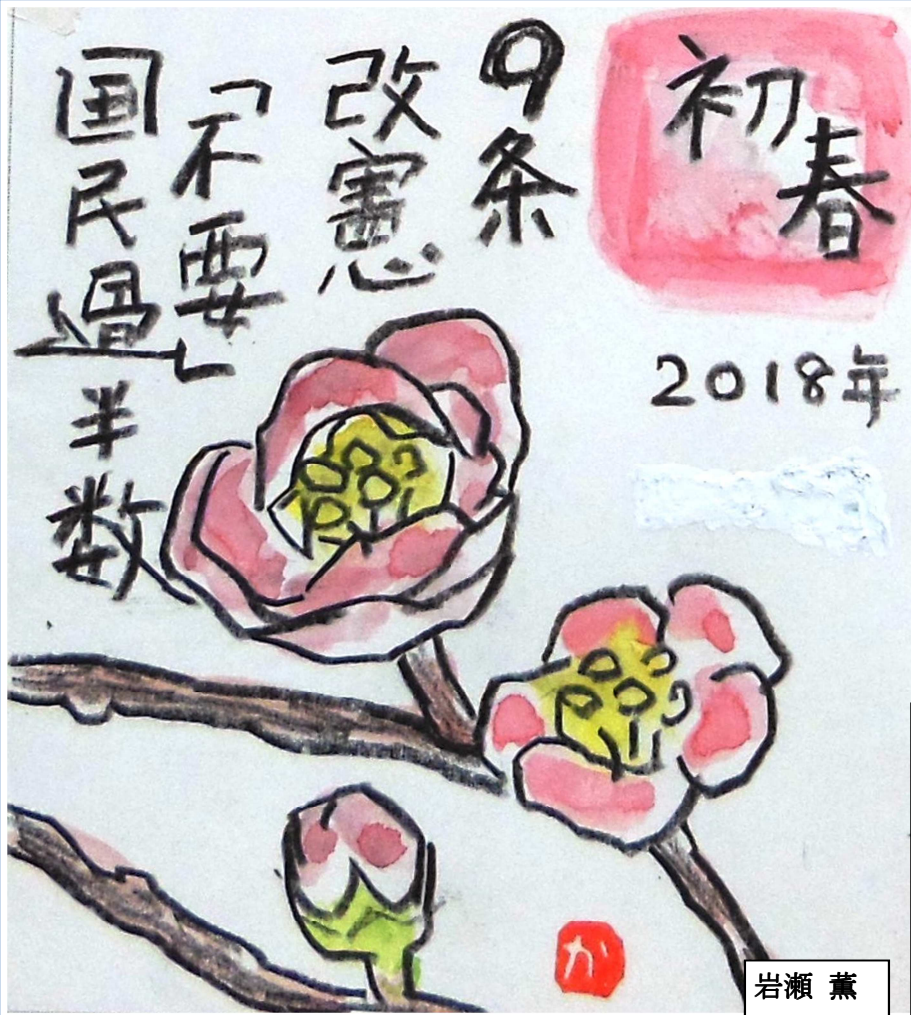 初春
2018年
9条
改憲
「不要」
国民過半数
か
岩瀬 薫